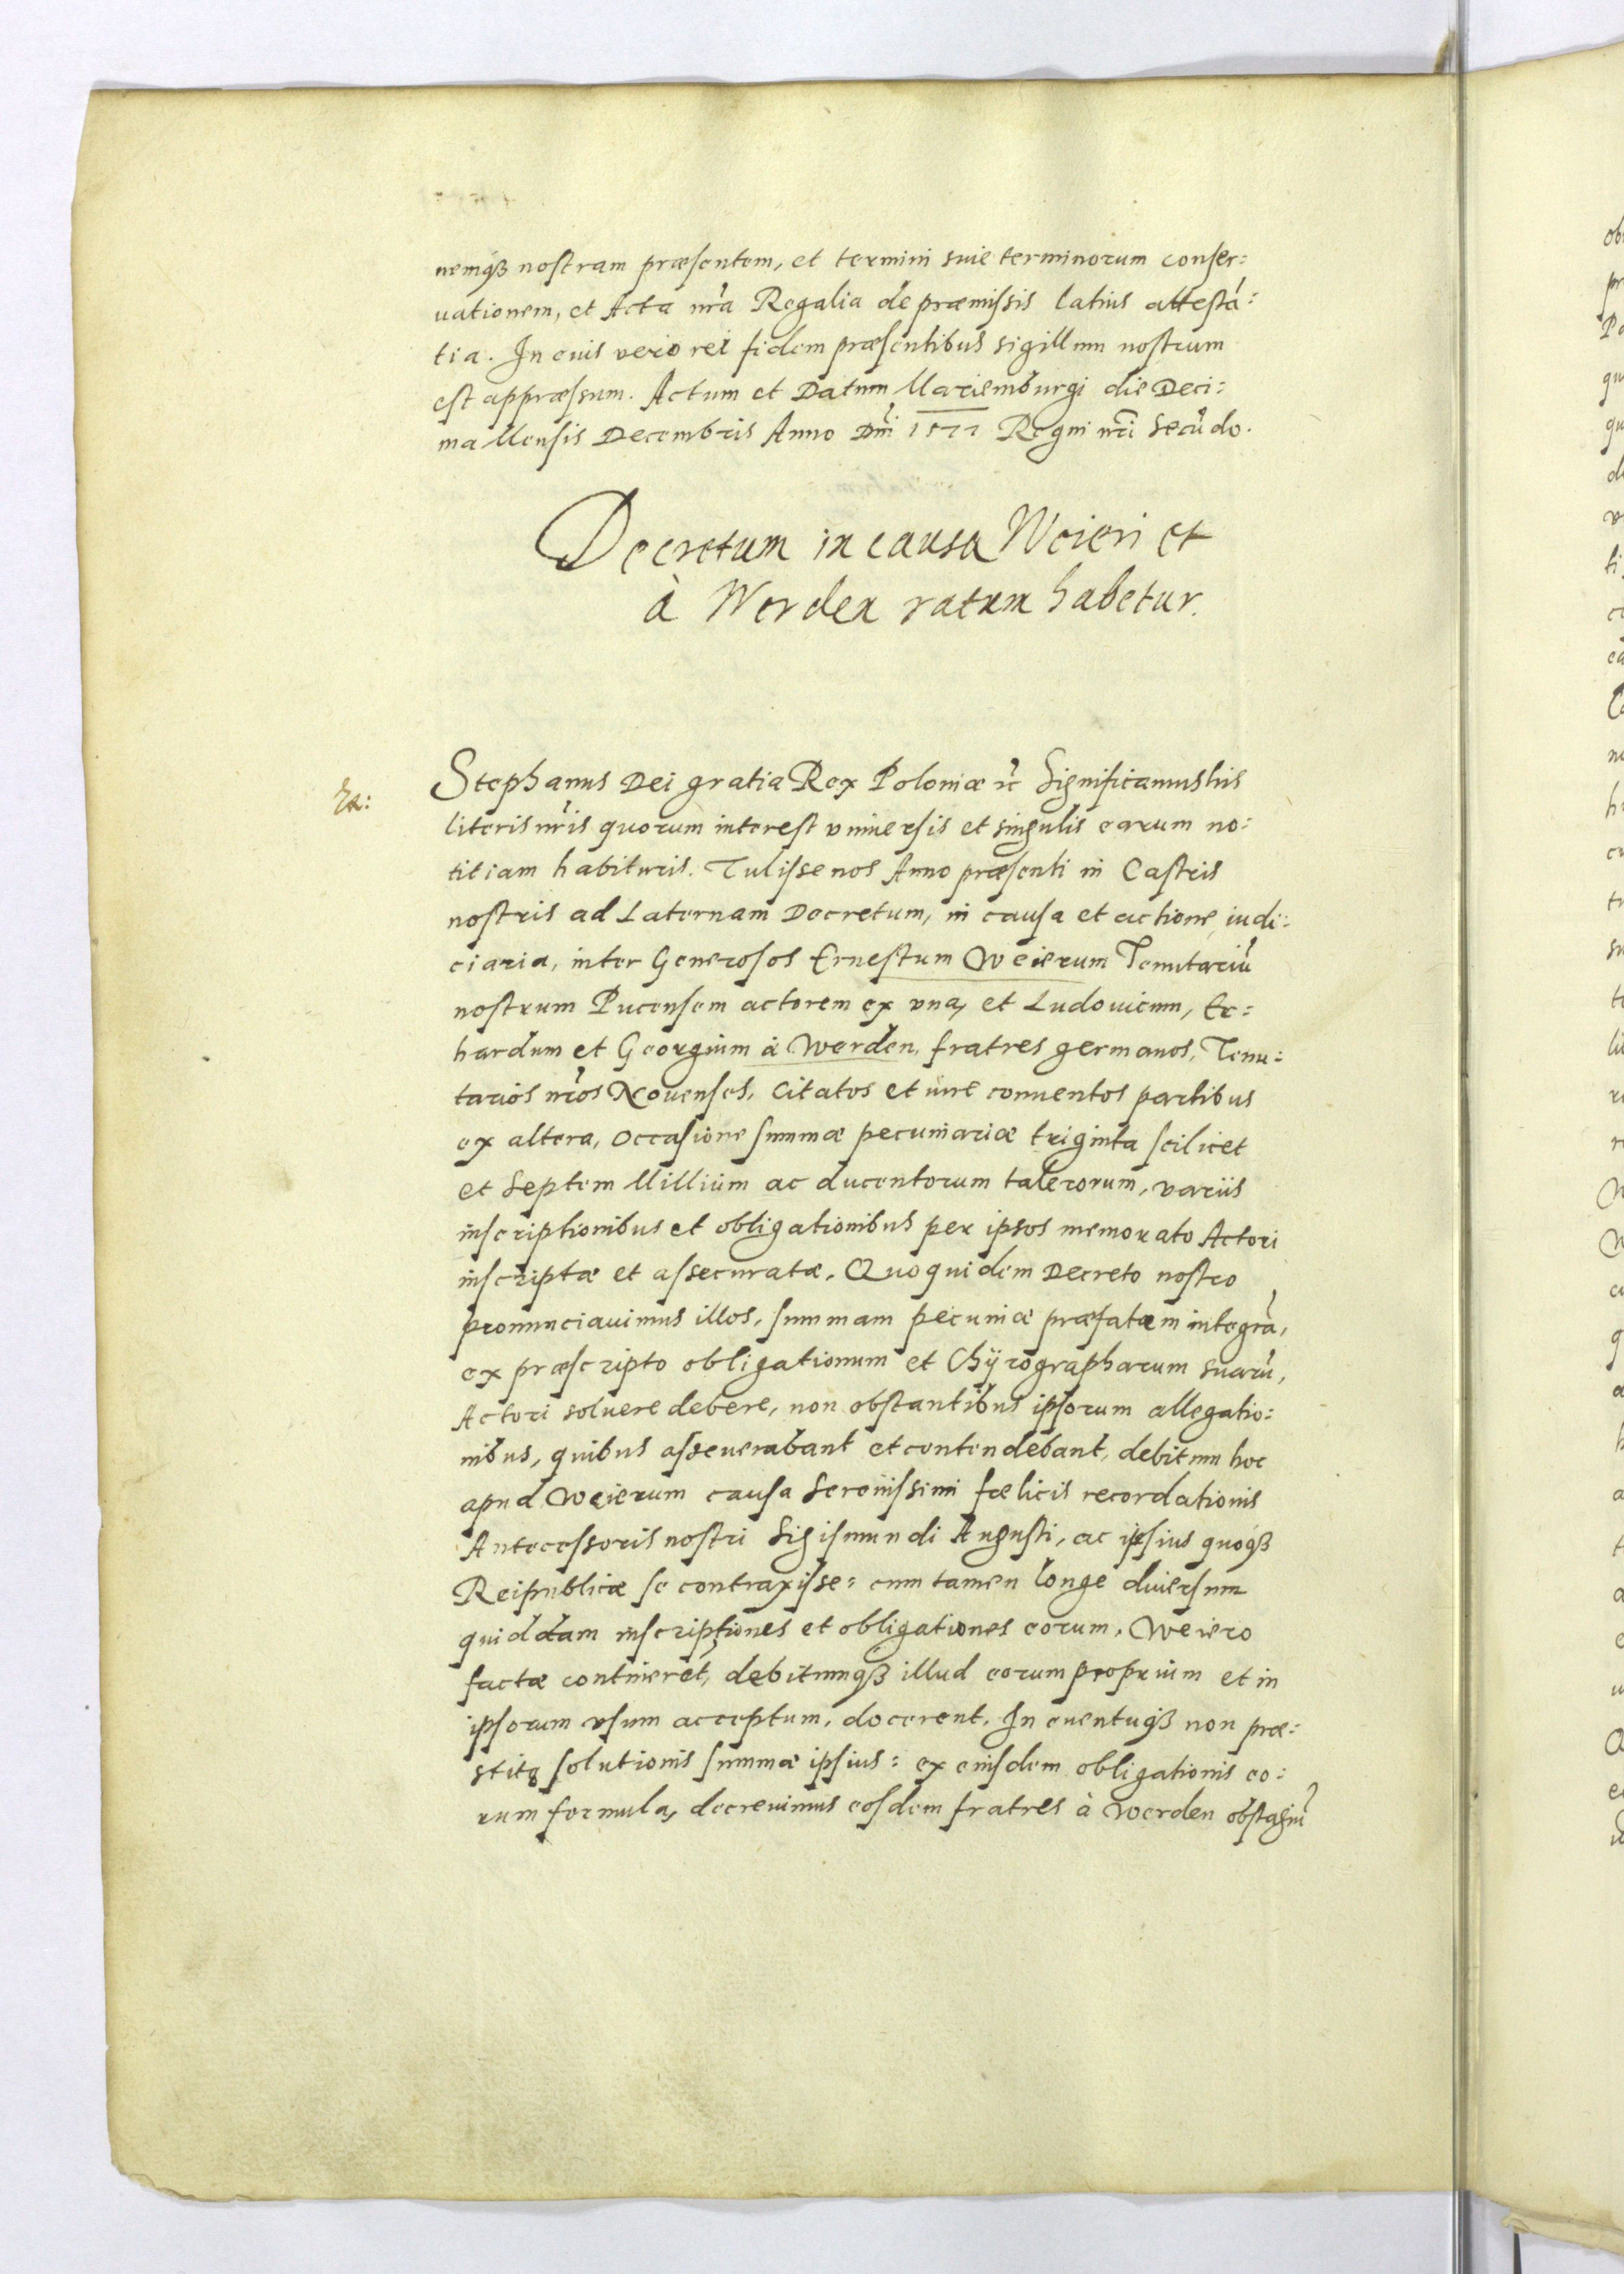 nemqȝ nostram præsentem, et termini siue terminorum conser:
uationem, et Acta nr̃a Regalia de præmissis latius attestã:
tia. In cuius vero rei fidem præsentibus sigillum nostrum
est appræssum. Actum et Datum Mariemburgi die Deci:
ma Mensis Decembris Anno Dñi 1577 Regni nr̃i Secũdo.
Decretum in causa Weieri et
à Werden ratum habetur.
Stephanus Dei gratia Rex Poloniæ ꝛc̃ Significamus his
literis nr̃is quorum interest vniuersis et singulis earum no:
titiam habituris. Tulisse nos Anno præsenti in Castris
nostris ad Laternam Decretum, in causa et actione iudi:
ciaria, inter Generosos Ernestum Weierum Tenutariũ
nostrum Pucensem actorem ex vna, et Ludouicum, Er:
hardum et Georgium à Werden, fratres germanos, Tenu:
tarios nr̃os Nouenses, Citatos et iure conuentos partibus
ex altera, Occasione summæ pecuniariæ triginta scilicet
et Septem Millium ac ducentorum talerorum, variis
inscriptionibus et obligationibus per ipsos memorato Actori
inscriptæ et assecuratæ. Quo quidem Decreto nostro
pronunciauimus illos, summam pecuniæ præfatam integrã,
ex præscripto obligationum et Chÿrographarum suarũ,
Actori soluere debere, non obstantibus ipsorum allegatio:
nibus, quibus asseuerabant et contendebant, debitum hoc
apud Weierum causa Serenissimi fœlicis recordationis
Antecessoris nostri Sigismundi Augusti, ac ipsius quoqȝ
Reipublicæ se contraxisse: cum tamen longe diuersum
quiddam inscriptiones et obligationes eorum, Weiero
factæ continerẽt, debitumqȝ illud eorum proprium et in
ipsorum vsum acceptum, docerent. In euentuqȝ non præ:
stitę solutionis summæ ipsius: ex eiusdem obligationis eo:
rum formula, decreuimus eosdem fratres à Werden obstagiũ